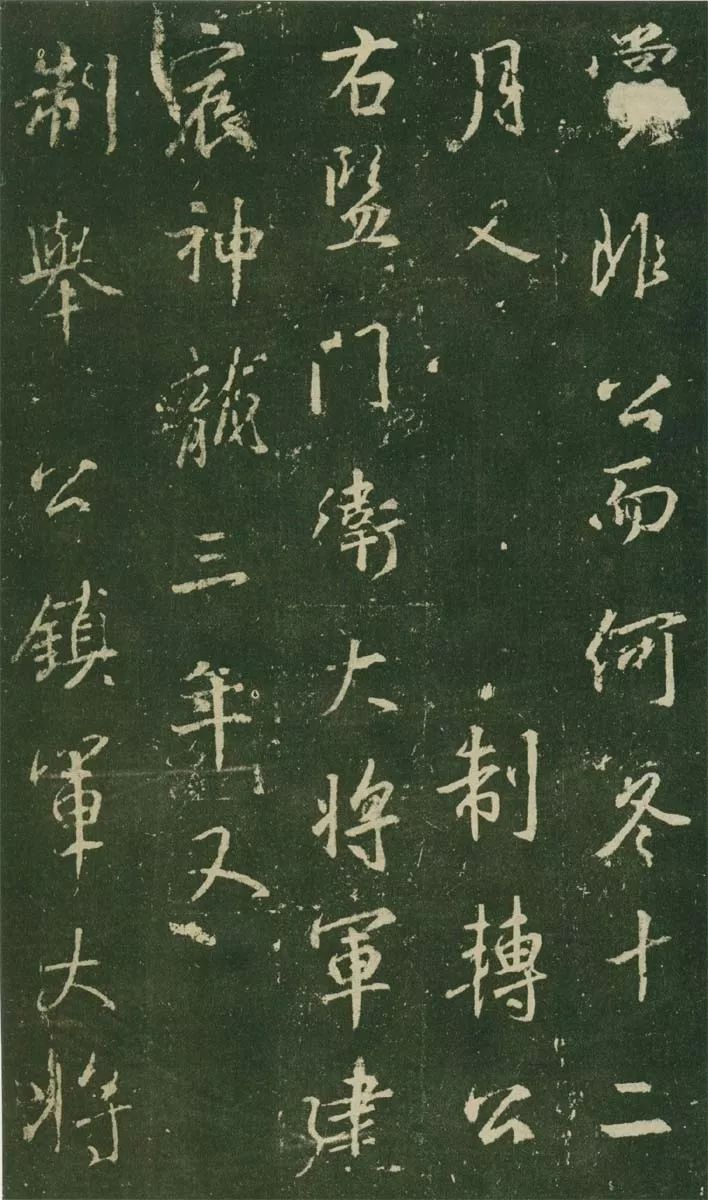 非公而何冬十二
月又 制轉公
右監門衛大將軍建
神龍三年又
制舉 公鎮軍大將